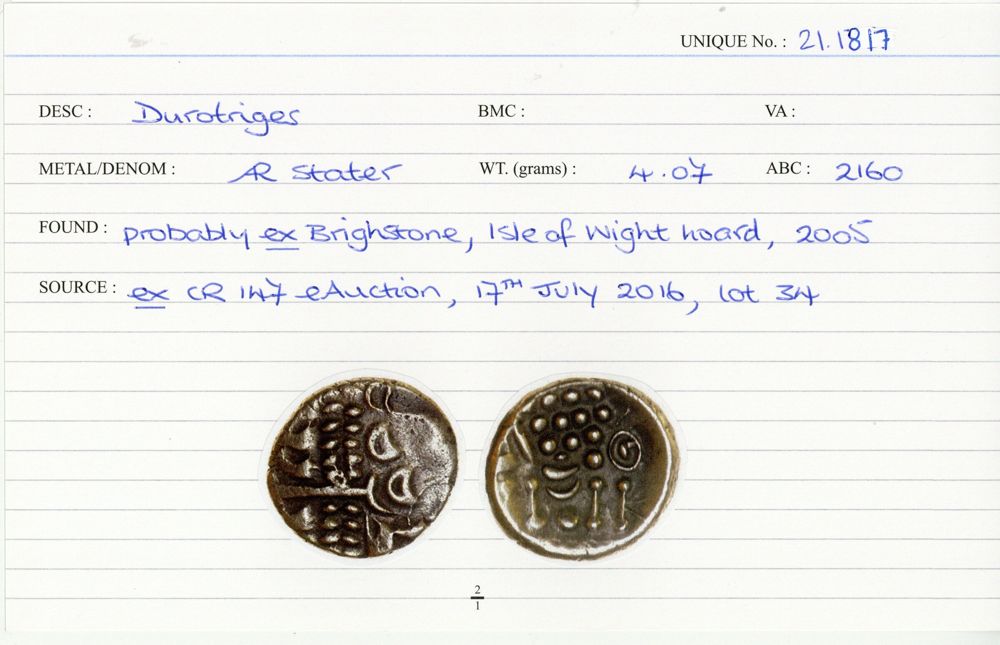 UNIQUE No. : 21.1817
DESC : Durotriges BMC : VA :
METAL/DENOM : AR Stater WT. (grams) : 4.07 ABC : 2160
FOUND : probably ex Brighstone, Isle of Wight hoard, 2005
SOURCE : ex CR 147 eAuction, 17TH July 2016, lot 34
2
1